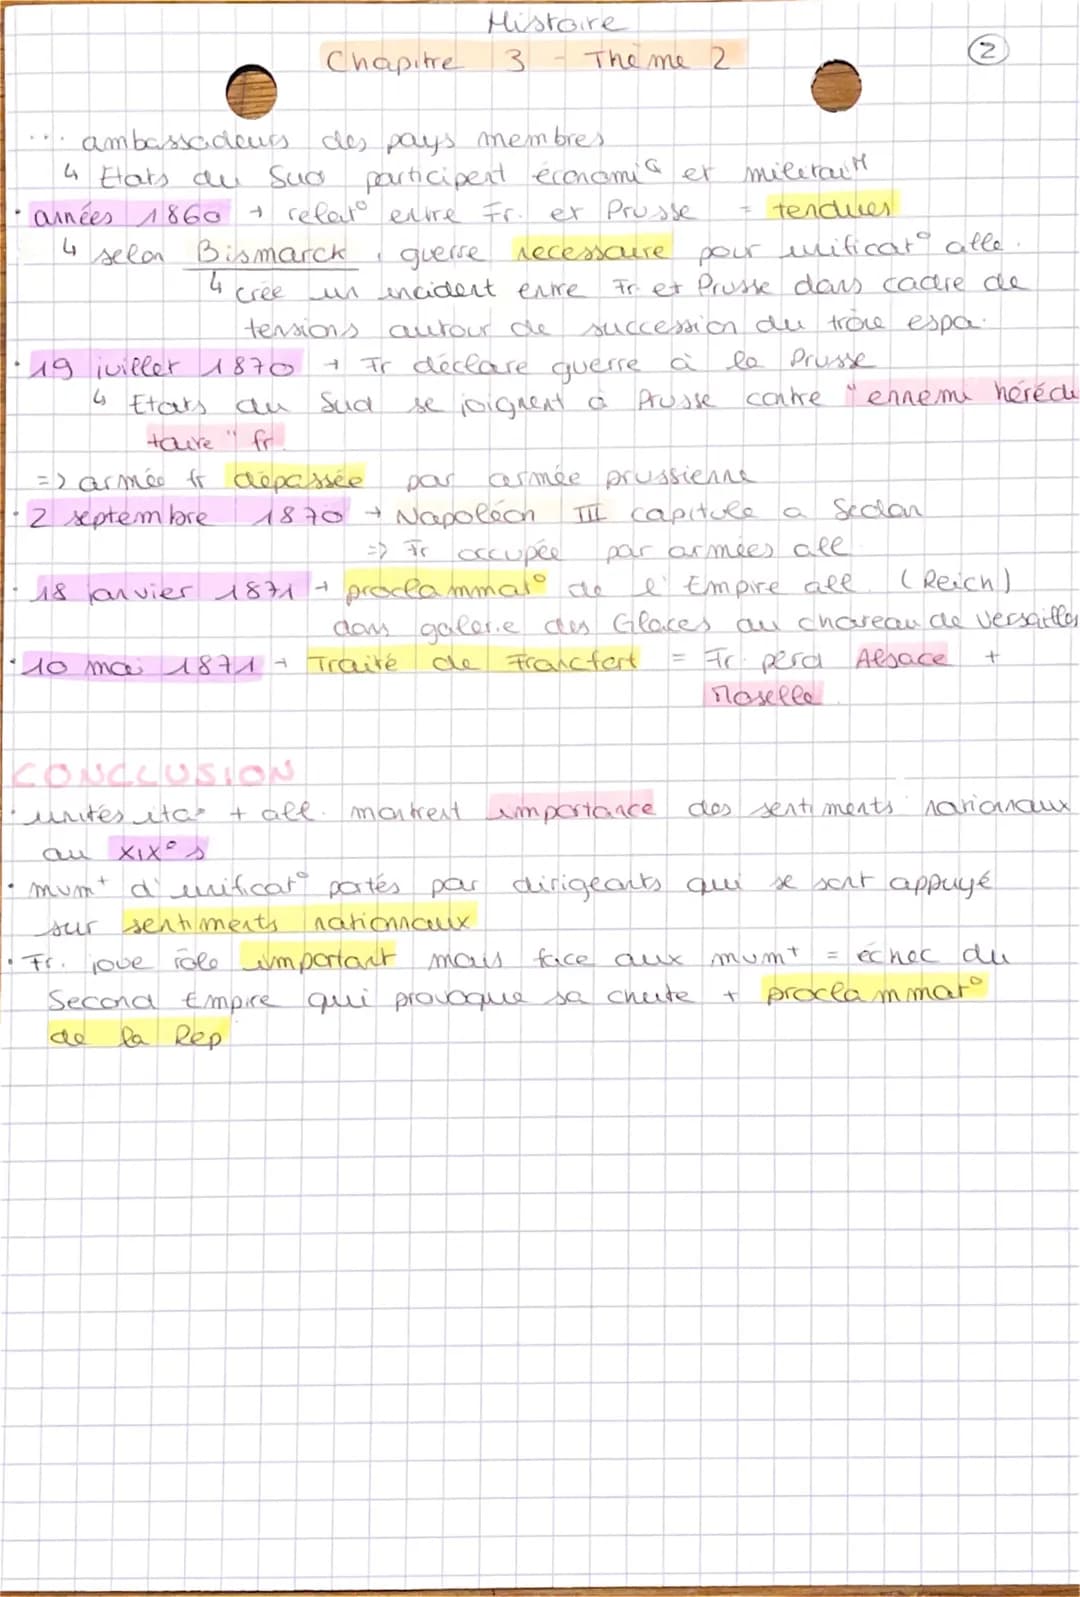 Histoire
Chapitre 3 - Thème 2
2
... ambassadeurs des pays membres
↳ Etats du Sud participent économi^q et militair^t
· années 1860 → relat° entre Fr. et Prusse = tendues
↳ selon Bismarck, guerre necessaire pour unificat° alle.
↳ crée un incident entre Fr. et Prusse dans cadre de
tensions autour de succession du trône espa.
· 19 juillet 1870 → Fr déclare guerre à la Prusse
↳ Etats du Sud se joignent à Prusse contre "ennemi hérédi
taire" fr.
=> armée fr dépassée par armée prussienne
· 2 septembre 1870 → Napoléon III capitule a Sedan
=> Fr occupée par armées all.
· 18 janvier 1871 → proclammat° de l'Empire all. (Reich)
dans galerie des Glaces au chateau de Versailles
· 10 mai 1871 → Traité de Francfort = Fr. perd Alsace +
Moselle.
CONCLUSION
· unités ita. + all. montrent importance des sentiments nationnaux
au XIX° s
· mvm^t d'unificat° portés par dirigeants qui se sont appuyé
sur sentiments nationnaux
· Fr. joue rôle important mais face aux mvm^t = échec du
Second Empire qui provoque sa chute + proclammat°
de la Rép